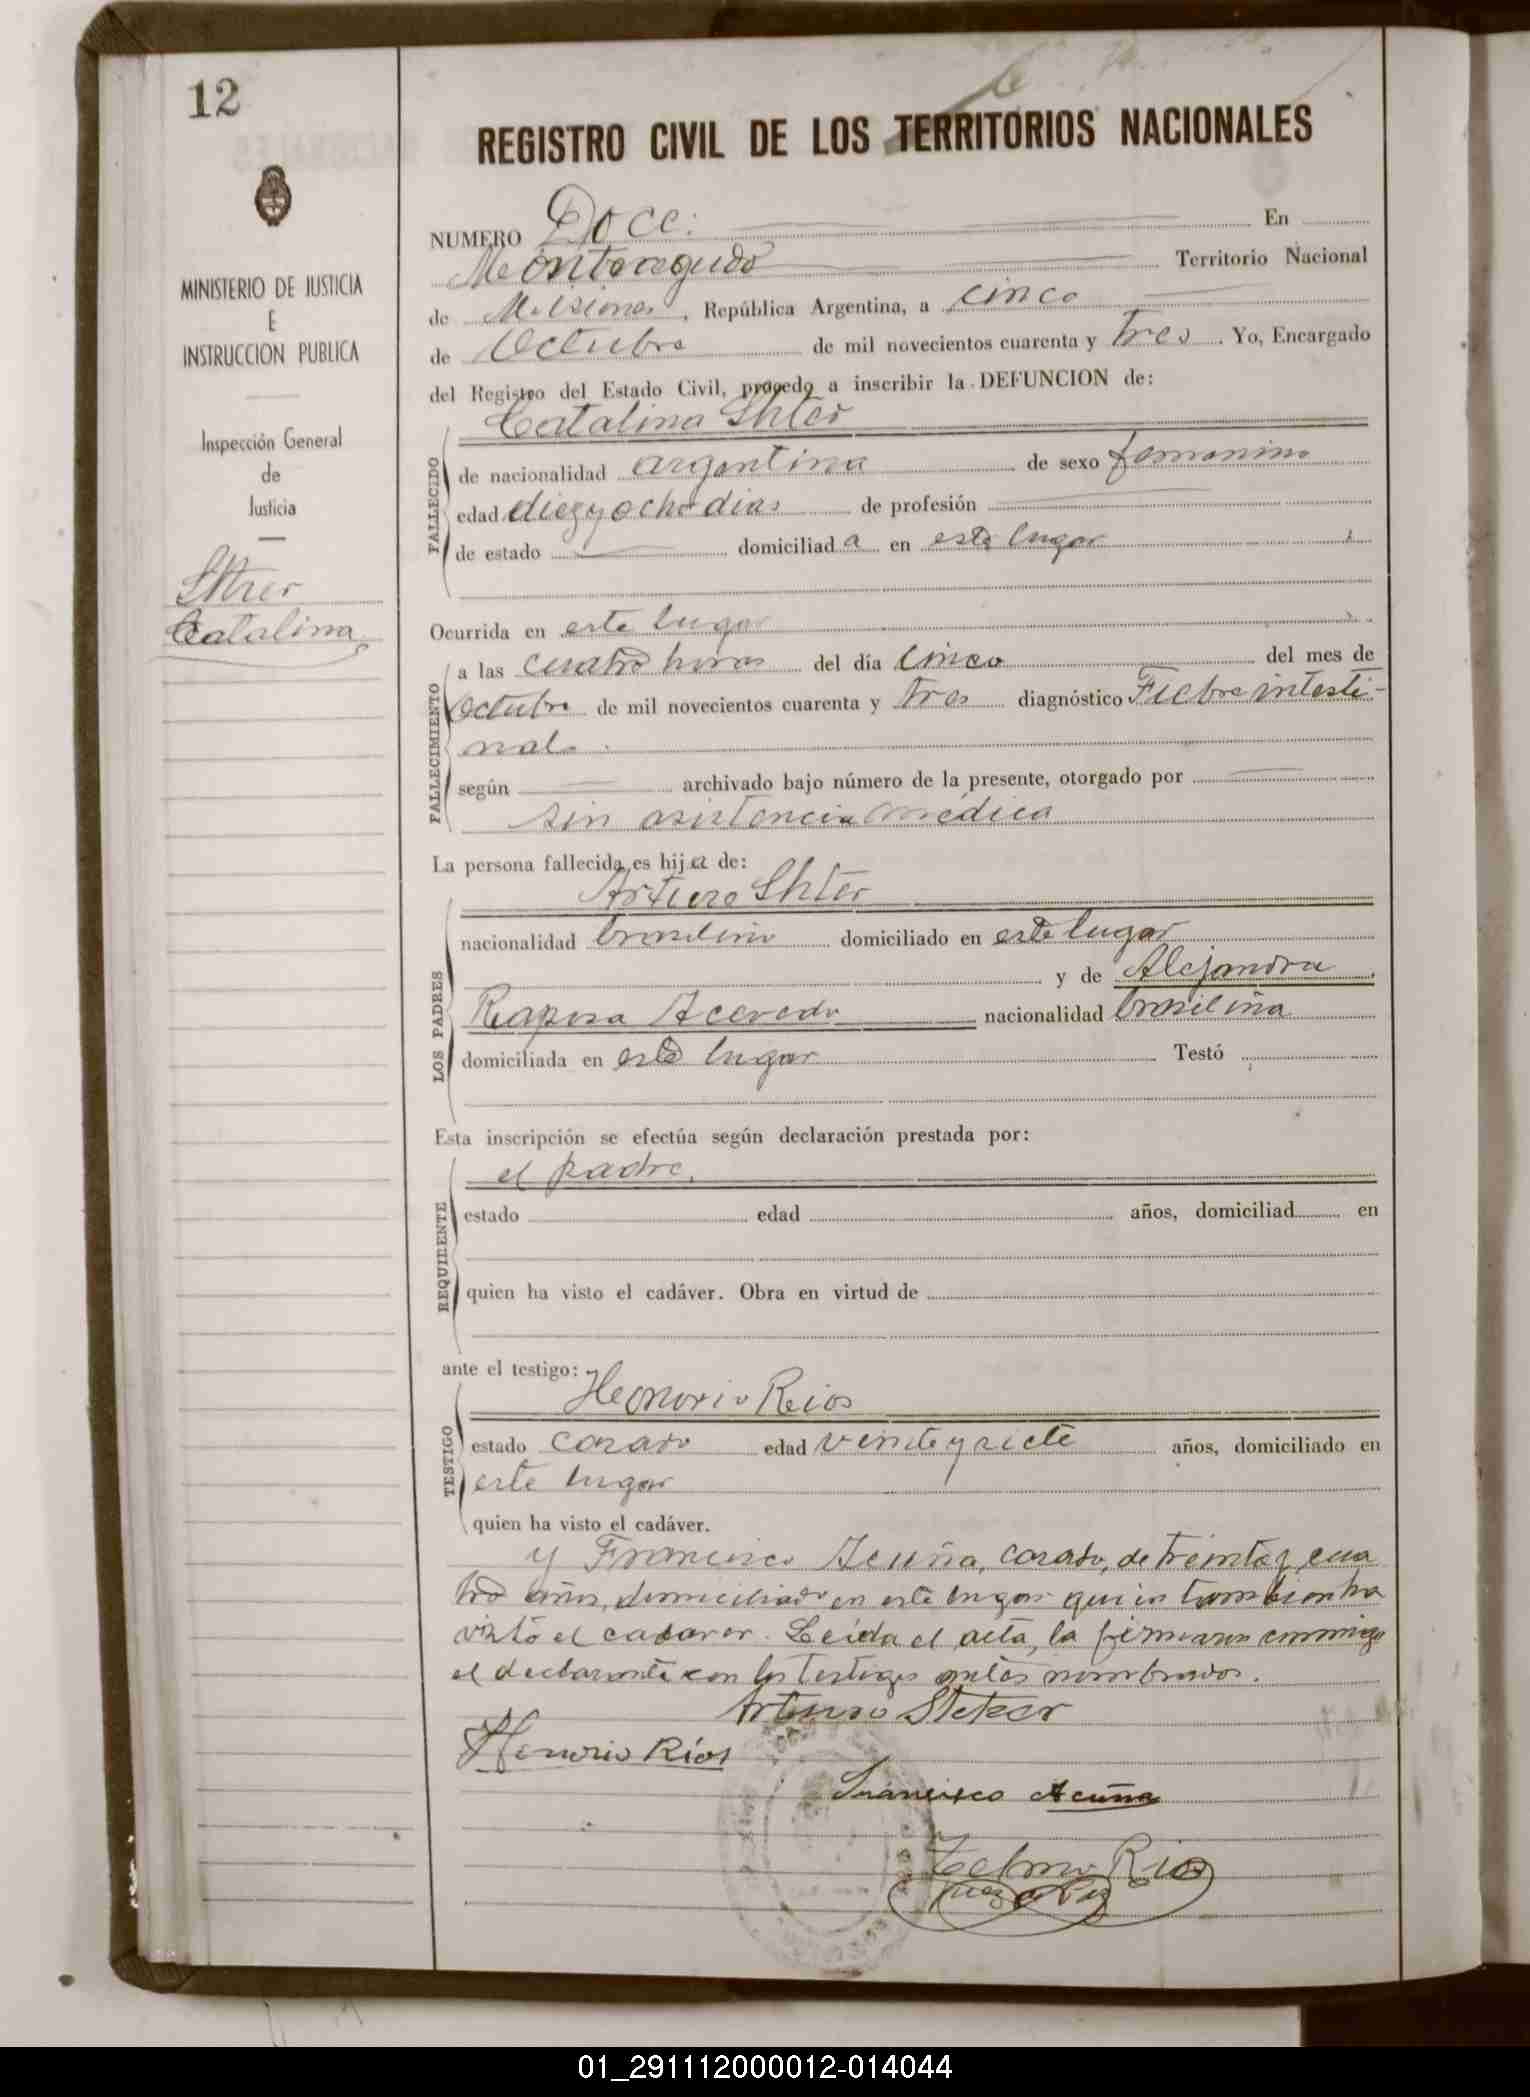 12
REGISTRO CIVIL DE LOS TERRITORIOS NACIONALES
MINISTERIO DE JUSTICIA
E
INSTRUCCION PUBLICA
Inspección General
de
Justicia
Catalina
NUMERO Doce: En
Monteagudo Territorio Nacional
de Misiones, República Argentina, a cinco
de Octubre de mil novecientos cuarenta y tres. Yo, Encargado
del Registro del Estado Civil, procedo a inscribir la DEFUNCION de:
Catalina Shter
FALLECIDO
de nacionalidad argentina de sexo femenino
edad diez y ocho dias de profesión
de estado domiciliada en este lugar
Ocurrida en este lugar
FALLECIMIENTO
a las cuatro horas del día cinco del mes de
Octubre de mil novecientos cuarenta y tres diagnóstico Fiebre intesti-
nal.
según archivado bajo número de la presente, otorgado por
sin asistencia médica
La persona fallecida es hija de:
Arturo Shter
LOS PADRES
nacionalidad brasileño domiciliado en este lugar
y de Alejandra
Raposa Acevedo nacionalidad brasileña
domiciliada en este lugar Testó
Esta inscripción se efectúa según declaración prestada por:
el padre.
REQUIRENTE
estado edad años, domiciliad en
quien ha visto el cadáver. Obra en virtud de
ante el testigo:
Honorio Rios
TESTIGO
estado casado edad veinte y siete años, domiciliado en
este lugar
quien ha visto el cadáver.
y Francisco Acuña, casado, de treinta y cua
tro años, domiciliado en este lugar quien tambien ha
visto el cadaver. Leida el acta, la firmaron conmigo
el declarante con los testigos antes nombrados.
Arturo Steker
Honorio Ríos
Francisco Acuña
Telmo Rios
Juez de Paz
01_291112000012-014044